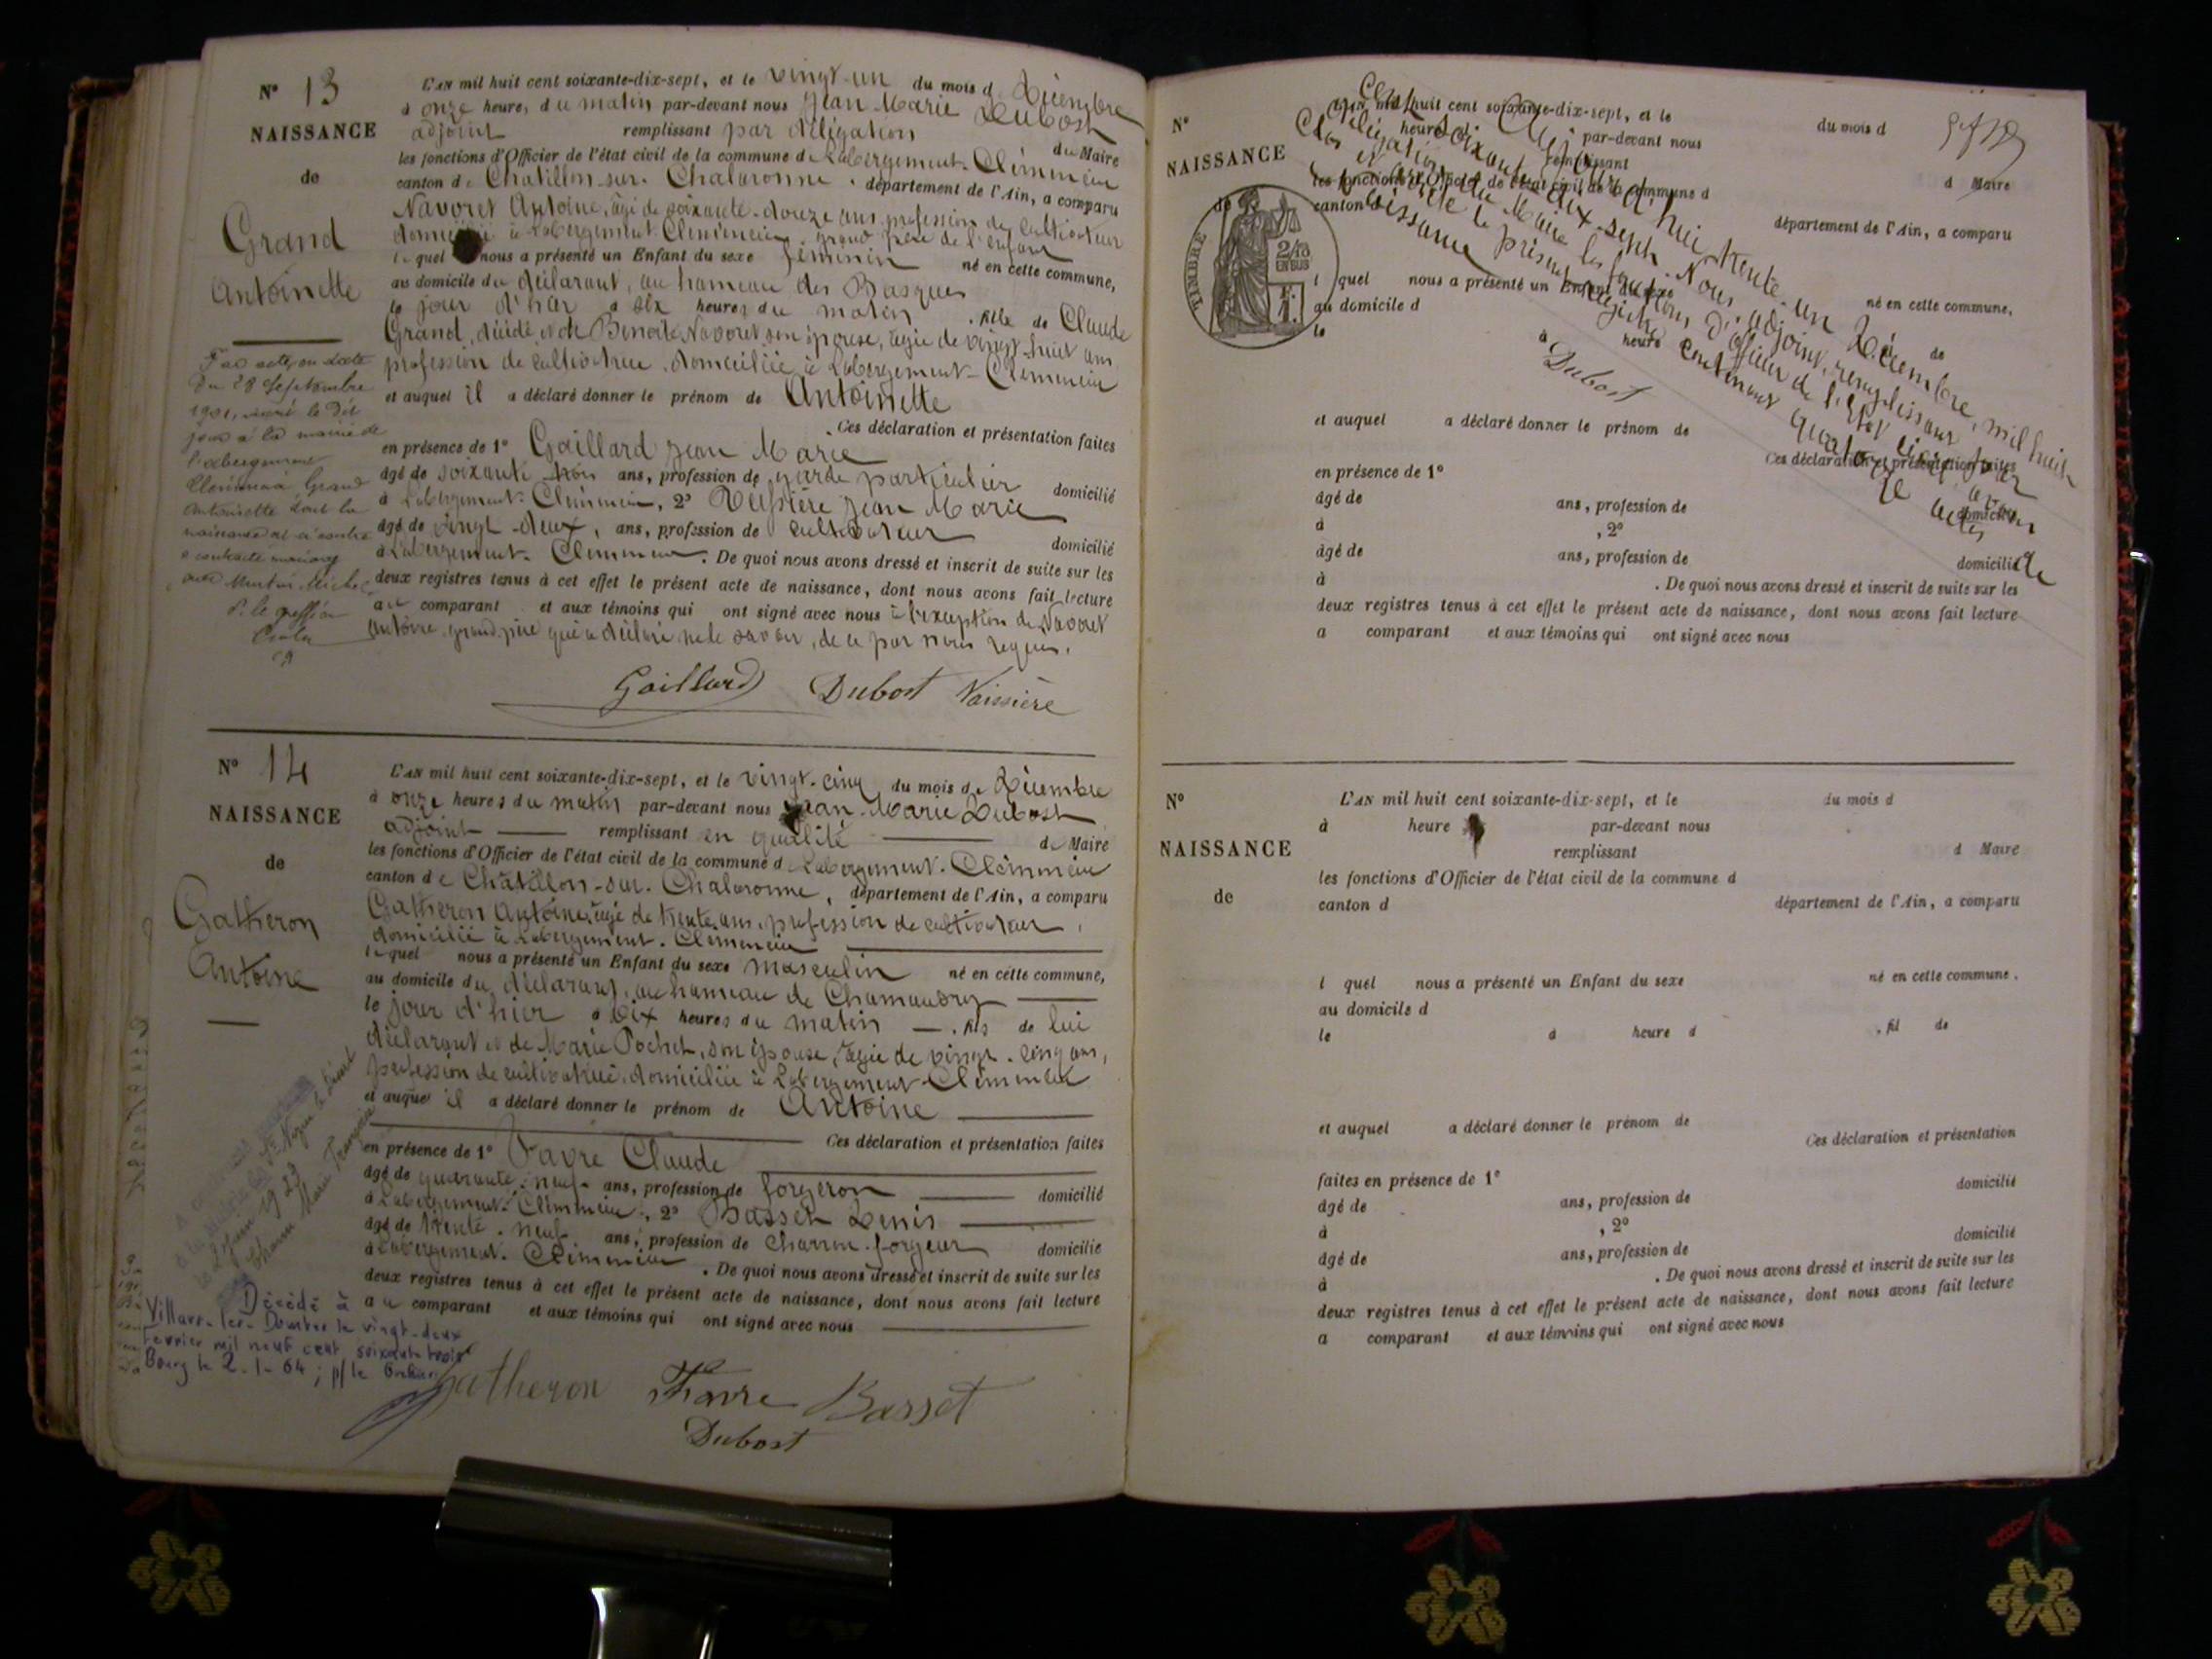 N° 13
NAISSANCE
de
Grand
Antoinette
L'AN mil huit cent soixante-dix-sept, et le vingt-un du mois d Décembre
à onze heure, du matin par-devant nous Jean Marie Dubost
adjoint remplissant par délégation du Maire
les fonctions d'Officier de l'état civil de la commune de Labergement-Clémencia
canton de Chatillon-sur-Chalaronne, département de l'Ain, a comparu
Navoret Antoine, âgé de soixante-douze ans, profession de cultivateur
domicilié à Labergement-Clémencia, grand père de l'enfant
lequel nous a présenté un Enfant du sexe féminin né en cette commune,
au domicile du déclarant, au hameau des
le jour d'hier à six heures du matin, fille de Claude
Grand, décédé, et de Benoite Navoret son épouse, âgée de vingt-huit ans
profession de cultivatrice, domiciliée à Labergement-Clémencia
et auquel il a déclaré donner le prénom de Antoinette
. Ces déclaration et présentation faites
en présence de 1° Gaillard Jean Marie
âgé de soixante trois ans, profession de garde particulier domicilié
à Labergement-Clémencia, 2° Veyssière Jean Marie
âgé de vingt-deux, ans, profession de cultivateur domicilié
à Labergement-Clémencia. De quoi nous avons dressé et inscrit de suite sur les
deux registres tenus à cet effet le présent acte de naissance, dont nous avons fait lecture
au comparant et aux témoins qui ont signé avec nous à l'exception de Navoret
Antoine, grand père qui a déclaré ne le savoir, de ce par nous requis.
Gaillard Dubost Vaissière
Par acte, en date
du 28 Septembre
1901,
à la mairie de
l'abergement
Clémencia Grand
Antoinette dont la
naissance est ci contre
a contracté mariage
avec Michel
P. le greffier
N° 14
NAISSANCE
de
Gatheron
Antoine
L'AN mil huit cent soixante-dix-sept, et le vingt-cinq du mois de Décembre
à onze heures du matin par-devant nous Jean-Marie Dubost
adjoint remplissant en qualité de Maire
les fonctions d'Officier de l'état civil de la commune d Labergement-Clémencia
canton de Châtillon-sur-Chalaronne, département de l'Ain, a comparu
Gatheron Antoine, âgé de trente ans, profession de cultivateur,
domicilié à Labergement-Clémencia
lequel nous a présenté un Enfant du sexe masculin né en cette commune,
au domicile du déclarant, au hameau de
le jour d'hier à dix heures du matin, fils de lui
déclarant et de Marie Pochet, son épouse, âgée de vingt-cinq ans,
profession de cultivatrice, domiciliée à Labergement-Clémencia
et auquel il a déclaré donner le prénom de Antoine
Ces déclaration et présentation faites
en présence de 1° Favre Claude
âgé de quarante-neuf ans, profession de forgeron domicilié
à Labergement-Clémencia, 2° Basset Denis
âgé de trente-neuf ans, profession de domicilié
à Labergement-Clémencia. De quoi nous avons dressé et inscrit de suite sur les
deux registres tenus à cet effet le présent acte de naissance, dont nous avons fait lecture
au comparant et aux témoins qui ont signé avec nous
Gatheron Favre Basset
Dubost
Décédé à
Villars-les-Dombes le vingt-deux
février mil neuf cent soixante trois
Bourg le 2-1-64; p/le Greffier
N°
NAISSANCE
de
TIMBRE
2/10
EN SUS
L'AN mil huit cent soixante-dix-sept, et le du mois d
à heure d par-devant nous
remplissant d Maire
les fonctions d'Officier de l'état civil de la commune d
canton d département de l'Ain, a comparu
l quel nous a présenté un Enfant du sexe né en cette commune,
au domicile d
le à heure de
et auquel a déclaré donner le prénom de
Ces déclaration et présentation faites
en présence de 1°
âgé de ans, profession de domicilié
à , 2°
âgé de ans, profession de domicilié
à . De quoi nous avons dressé et inscrit de suite sur les
deux registres tenus à cet effet le présent acte de naissance, dont nous avons fait lecture
a comparant et aux témoins qui ont signé avec nous
Clos et arrêté le présent registre contenant quatorze actes de
naissance
Aujourd'hui trente-un Décembre, mil huit
cent soixante dix-sept. Nous, adjoint, remplissant par
délégation du Maire les fonctions d'officier de l'état civil, avons
Dubost
N°
NAISSANCE
de
L'AN mil huit cent soixante-dix-sept, et le du mois d
à heure par-devant nous
remplissant d Maire
les fonctions d'Officier de l'état civil de la commune d
canton d département de l'Ain, a comparu
l quel nous a présenté un Enfant du sexe né en cette commune.
au domicile d
le à heure d , fil de
et auquel a déclaré donner le prénom de
Ces déclaration et présentation
faites en présence de 1° domicilié
âgé de ans, profession de
à , 2° domicilié
âgé de ans, profession de
à . De quoi nous avons dressé et inscrit de suite sur les
deux registres tenus à cet effet le présent acte de naissance, dont nous avons fait lecture
a comparant et aux témoins qui ont signé avec nous